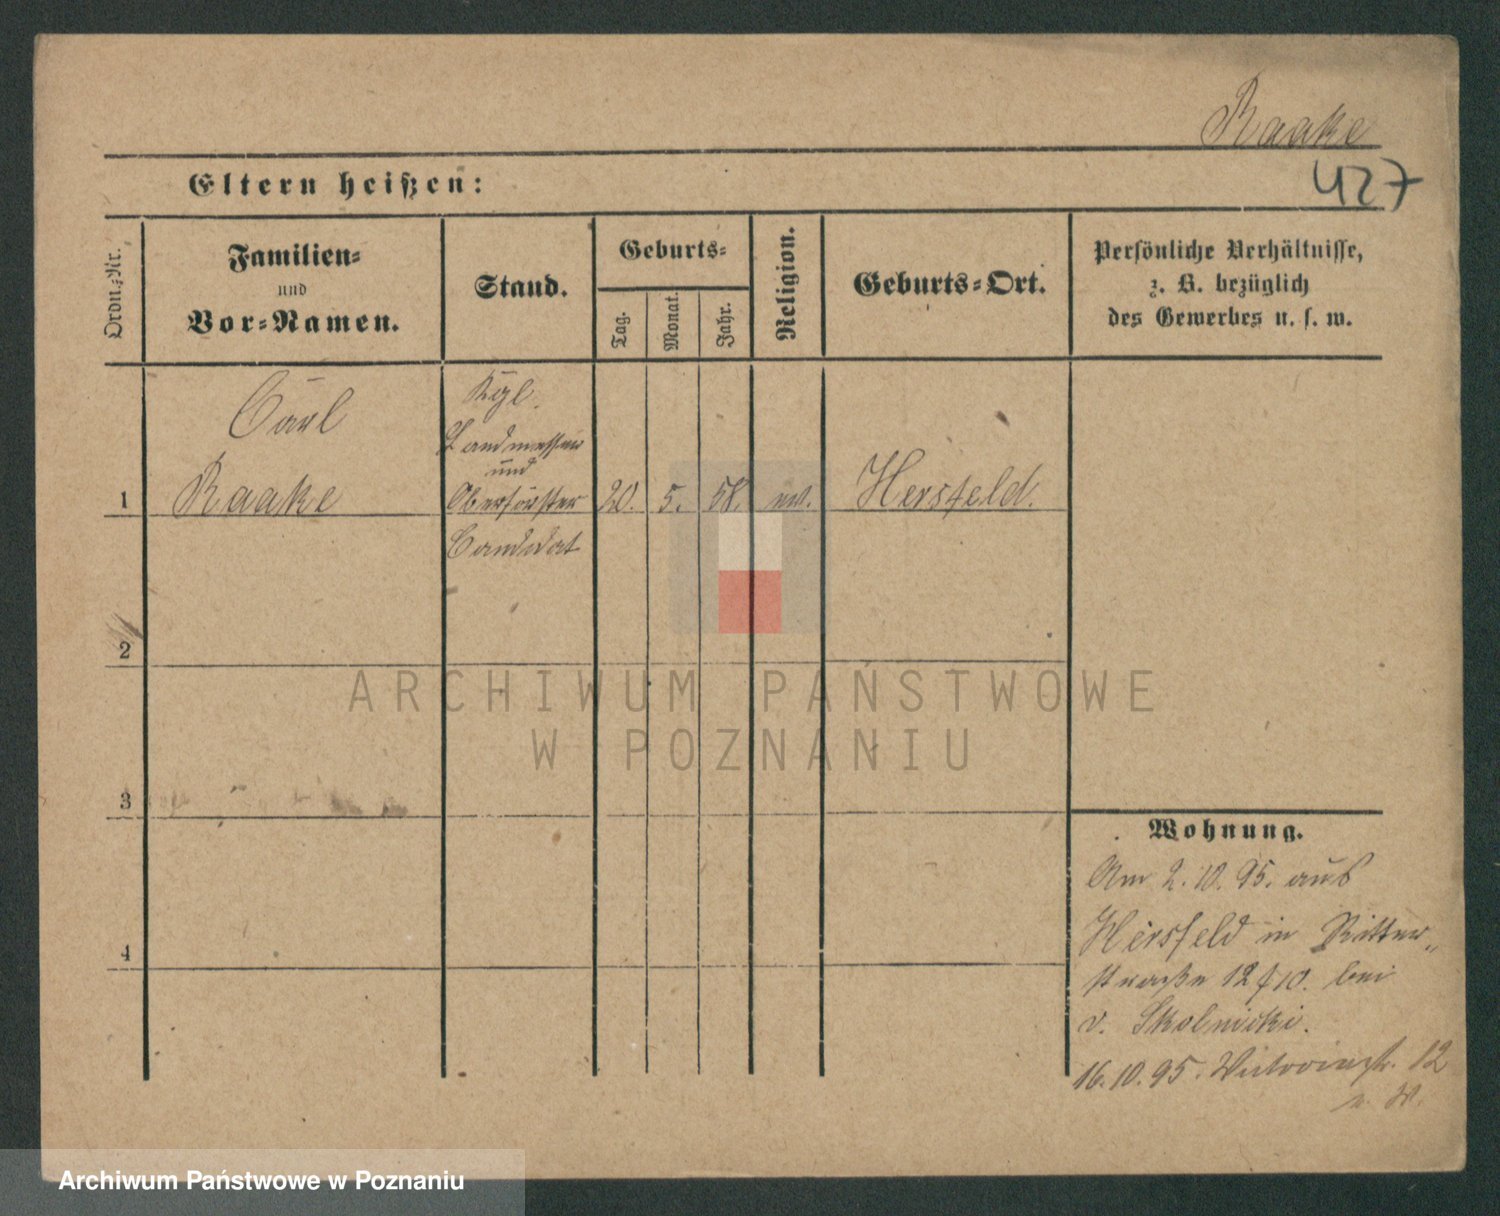 Raake
427
Eltern heißen:
Ordn.-Nr.
Familien-
und
Vor-Namen.
Stand.
Geburts-
Tag.
Monat.
Jahr.
Religion.
Geburts-Ort.
Persönliche Verhältnisse,
z. B. bezüglich
des Gewerbes u. s. w.
Carl
Raake
Kgl.
Landmesser
und
Oberförster
Candidat
1
20.
5.
58.
ev.
Hersfeld.
2
3
4
Wohnung.
Am 2.10.95. aus
Hersfeld in Ritter„
straße 12 bei
v. Skolnicki.
16.10.95. Victoriastr. 12
ARCHIWUM PAŃSTWOWE
W POZNANIU
Archiwum Państwowe w Poznaniu